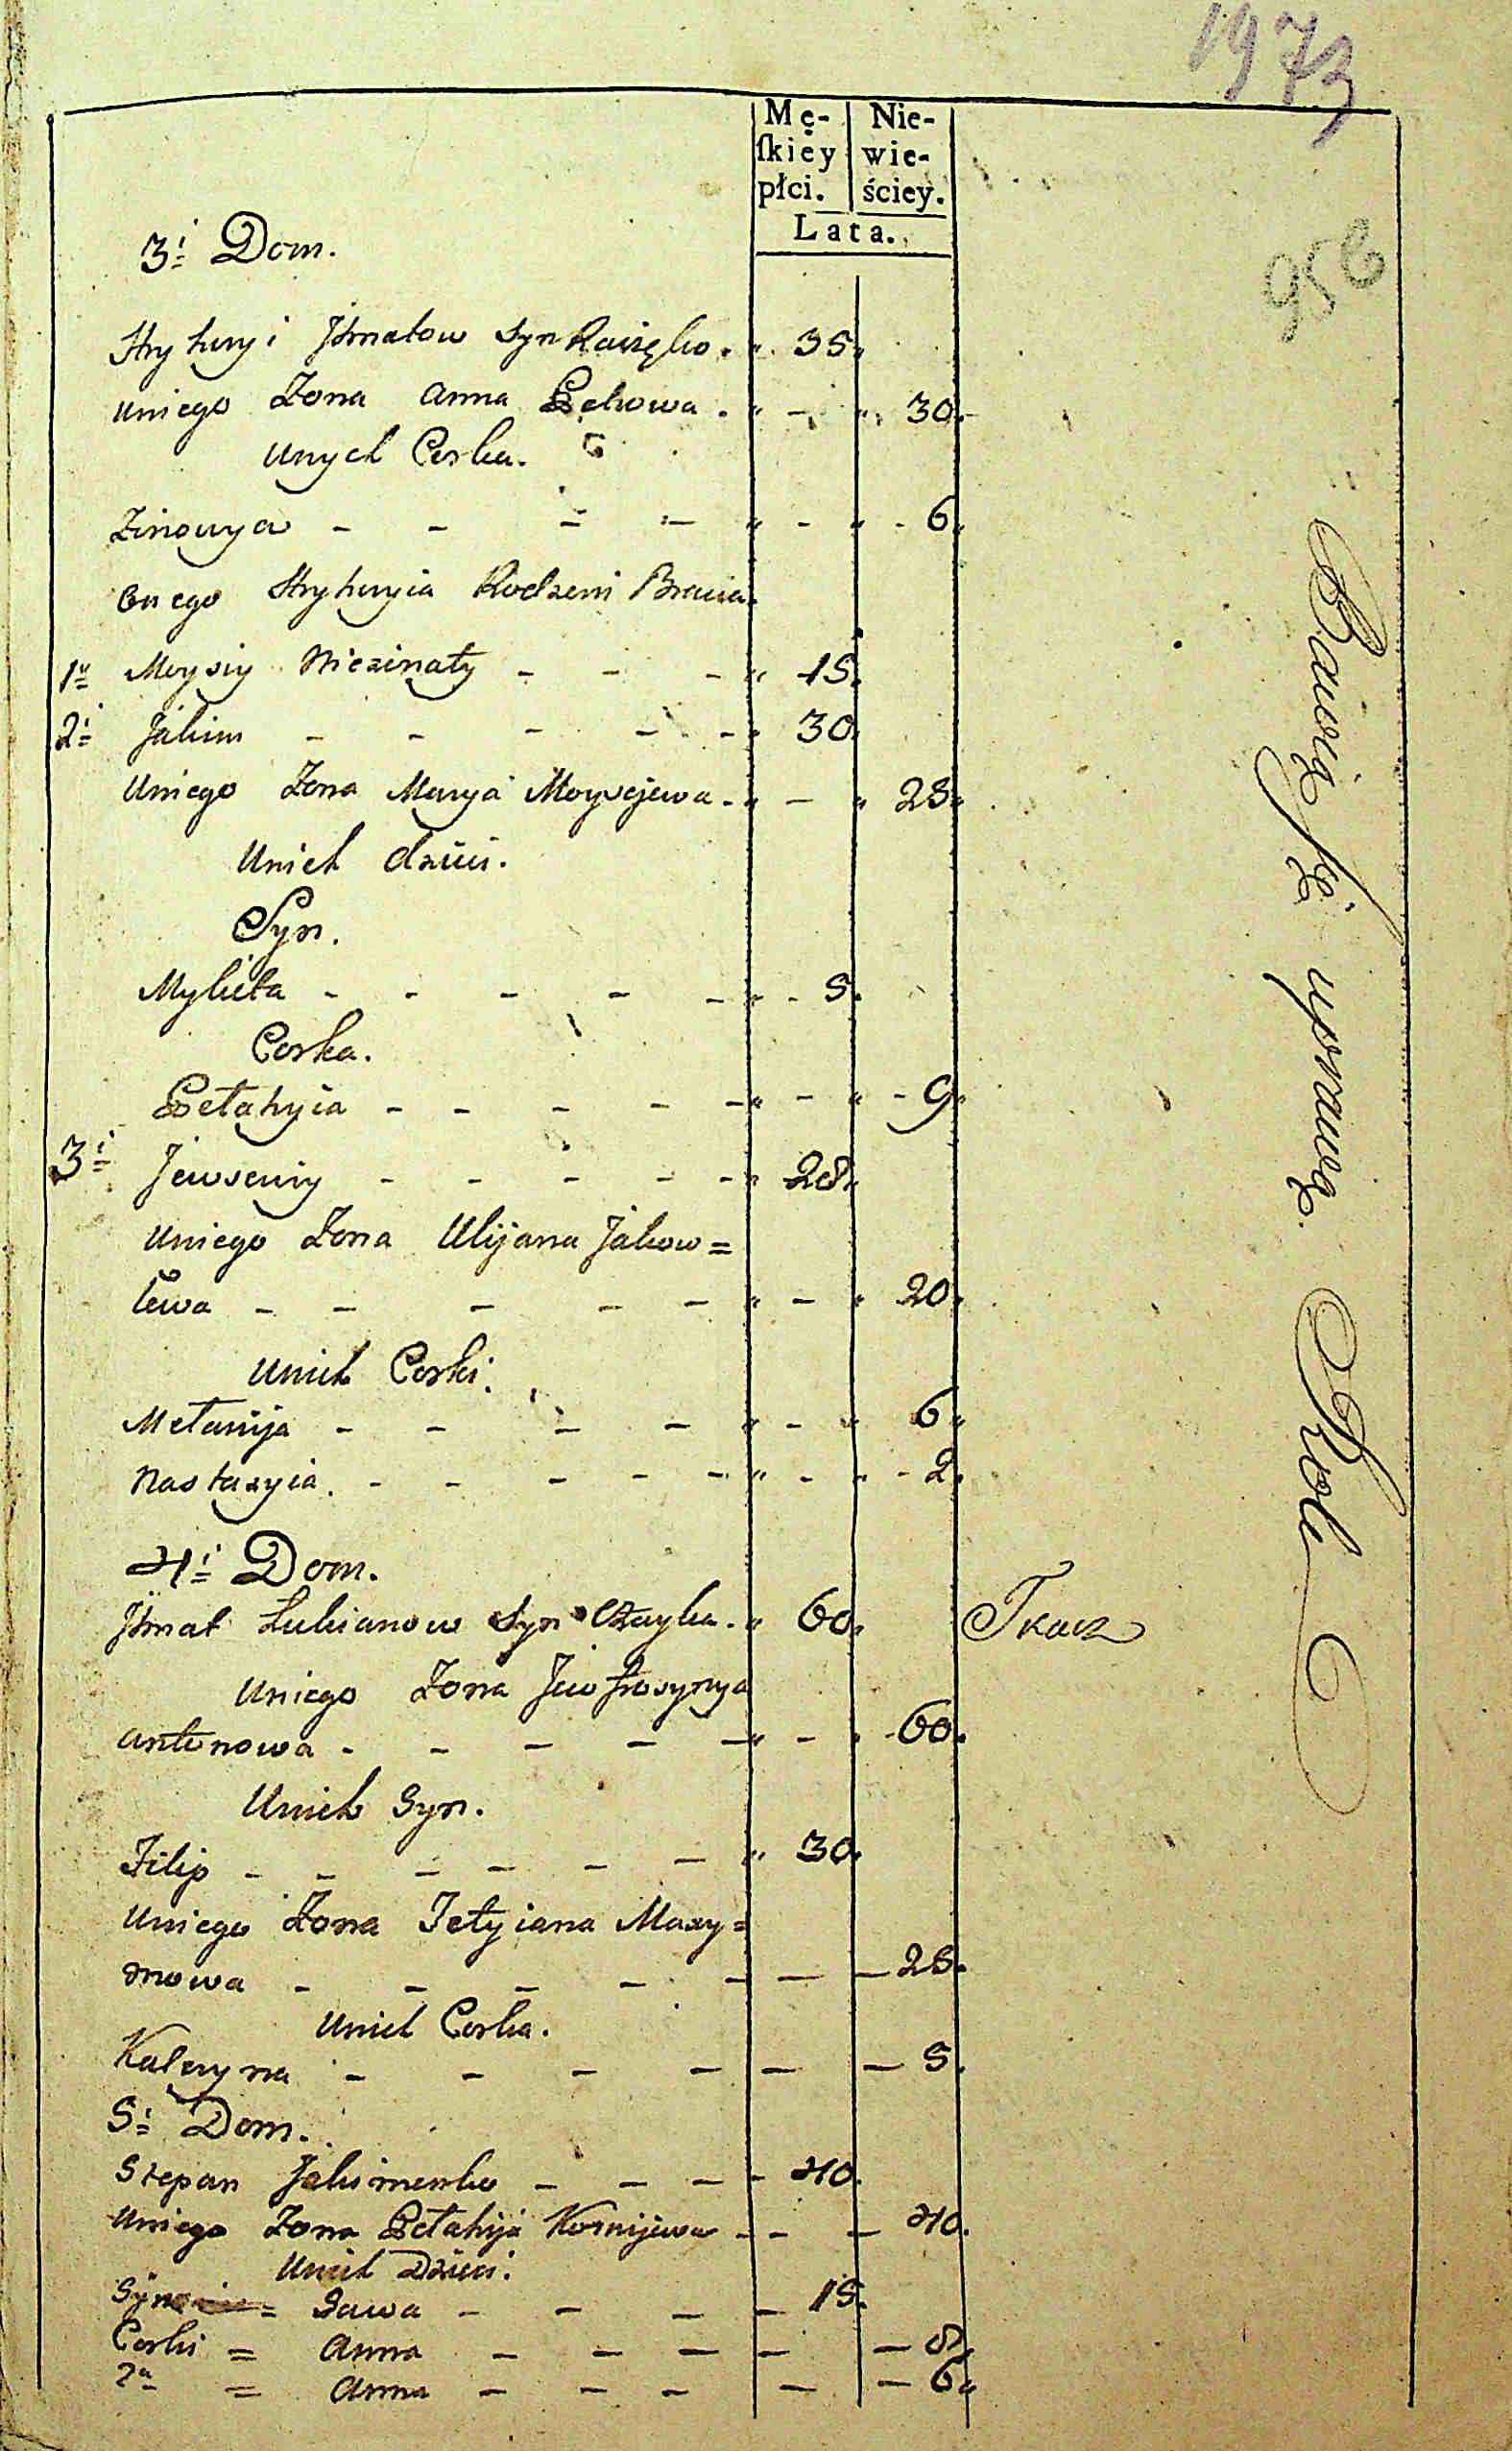 1973
Mę- Nie-
ſkiey wie-
płci. ściey.
Lata.
956
3i Dom.
Hryhuryi Jhnatow Syn 35
uniego Zona Anna 30
unych Corka.
Zinowya - - - - - - - 6
onego Hryhuryia Rodzeni Bracia
1y Moysiy Niezinaty - - - 15
2i Jakim - - - - - 30
Uniego Zona Marya Moysejewa - - 25
Unich dzieci.
Syn.
Mykieta - - - - - - 5
Corka.
Pełahyia - - - - - - - 9
3i Jewseuiy - - - - - 28
uniego Zona Ulijana Jakow=
lewa - - - - - - 20
unich Corki.
Mełanija - - - - - 6
Nastazyia - - - - - - - 2
4i Dom.
Jhnat Łukianow Syn Czayka 60 Tkacz
Uniego Zona Jewfrosynya
Antonowa - - - - - - - 60
Unich Syn.
Filip - - - - - - 30
Uniego Zona Tetyiana Maxy=
mowa - - - - - - - 25
unich Corka.
Kateryna - - - - - - 5
5i Dom.
Stepan Jakimenko - - - - 40
Uniego Zona Pełahija Kornijewa - - - 40
Unich Dzieci.
Syn = Sawa - - - - 15
Corki = Anna - - - - - 8
2a = Anna - - - - - 6
Bawią się uprawą Roli